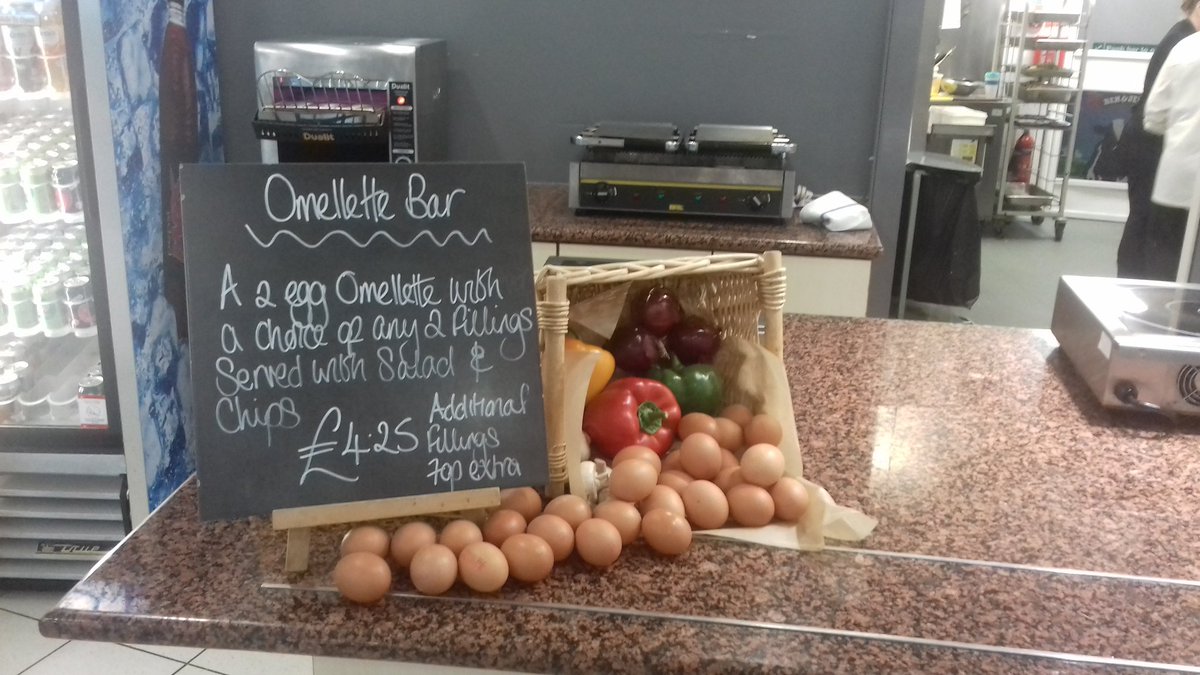 Omellette Bar
A 2 egg Omellette with
a choice of any 2 fillings
Served with Salad &
Chips
£4.25
Additional
fillings
70p extra
Dualit
Dualit
true